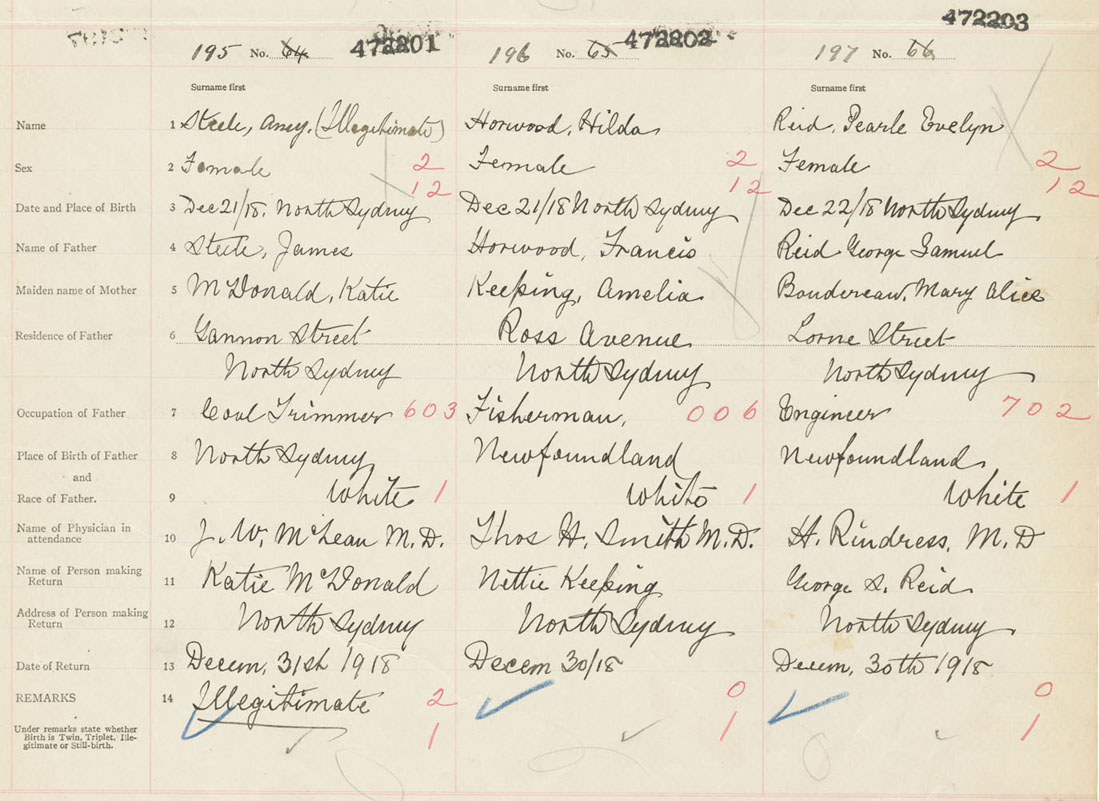 195 No. 64 472201 196 No. 65 472202 197 No. 66 472203
Surname first Surname first Surname first
Name 1 Steele, Amey, (Illegitimate) Horwood, Hilda Reid, Pearle Evelyn
Sex 2 Female 2 Female 2 Female 2
12 12 12
Date and Place of Birth 3 Dec 21/18. North Sydney Dec 21/18 North Sydney Dec 22/18 North Sydney
Name of Father 4 Steele, James Horwood, Francis Reid George Samuel
Maiden name of Mother 5 McDonald, Katie Keeping, Amelia Boudereau, Mary Alice
Residence of Father 6 Gannon Street Ross Avenue Lorne Street
North Sydney North Sydney North Sydney
Occupation of Father 7 Coal Trimmer 603 Fisherman, 006 Engineer 702
Place of Birth of Father 8 North Sydney Newfoundland Newfoundland
and
Race of Father. 9 White 1 White 1 White 1
Name of Physician in
attendance 10 J. W. McLean M.D. Thos H. Smith M.D. H. Rindress, M.D
Name of Person making
Return 11 Katie McDonald Nettie Keeping George S. Reid
Address of Person making
Return 12 North Sydney North Sydney North Sydney
Date of Return 13 Decem, 31st 1918 Decem 30/18 Decem, 30th 1918
REMARKS 14 Illegitimate 2 0 0
Under remarks state whether
Birth is Twin, Triplet, Ille-
gitimate or Still-birth. 1 1 1